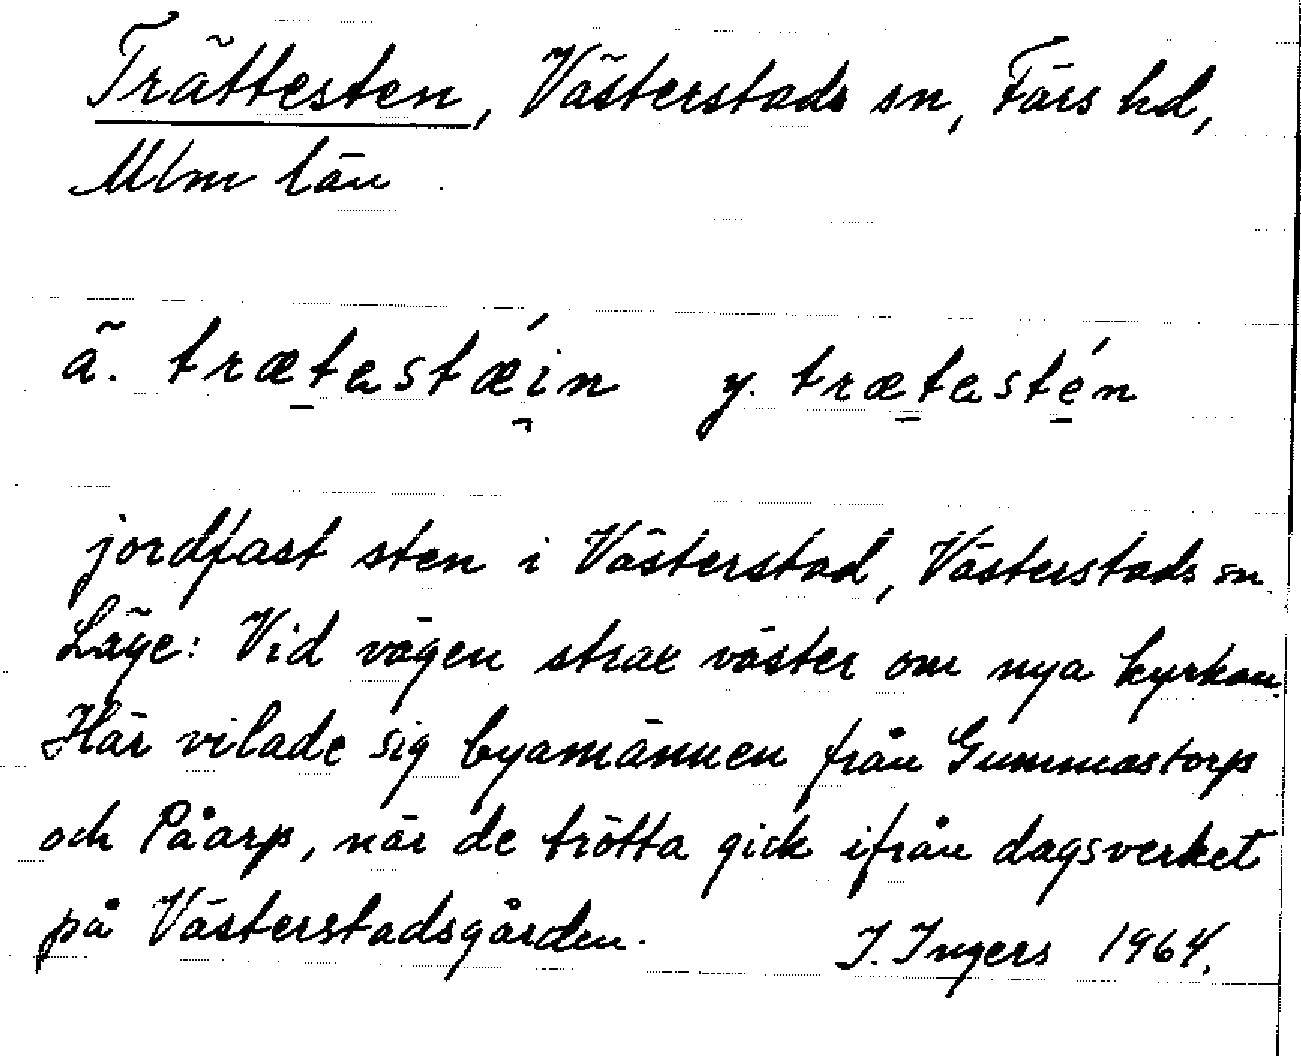 Trättesten, Västerstads sn, Färs hd,
Mlm län.
ä. trætestǽin y. trætestén
jordfast sten i Västerstad, Västerstads sn.
Läge: Vid vägen strax väster om nya kyrkan.
Här vilade sig byamännen från Gummastorp
och Påarp, när de trötta gick ifrån dagsverket
på Västerstadsgården. I. Ingers 1964.